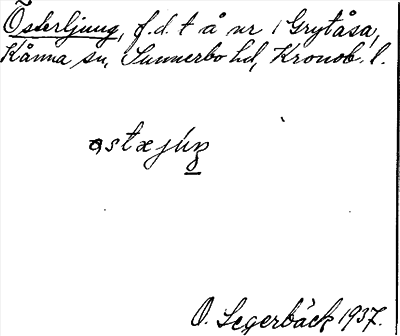 Österljung, f.d. t å nr 1 Grytåsa,
Kånna sn, Sunnerbo hd, Kronob. l.
ostæjuŋ
O. Segerbäck 1937.